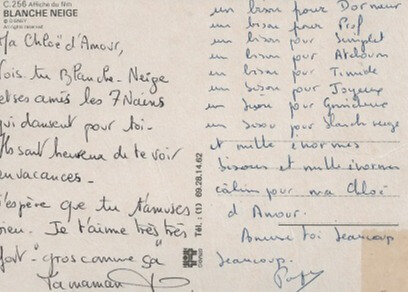 C. 256 Affiche du film
BLANCHE NEIGE
© DISNEY
All rights reserved
Ma Chloë d'Amour,
Vois-tu Blanche-Neige
et ses amis les 7 Nains
qui dansent pour toi-
Ils sont heureux de te voir
en vacances-
J'espère que tu t'amuses
bien. Je t'aime très très
fort-"gros comme ça"
Ta maman
TEL: (1) 69.28.14.62
un bisou pour Dormeur
un bisou pour Prof
un bisou pour Simplet
un bisou pour Atchoum
un bisou pour Timide
un bisou pour Joyeux
un bisou pour Grincheux
un bisou pour Blanche neige
et mille énormes
bisous et mille énormes
câlins pour ma Chloë
d'Amour.
Amuse toi beaucoup
beaucoup.